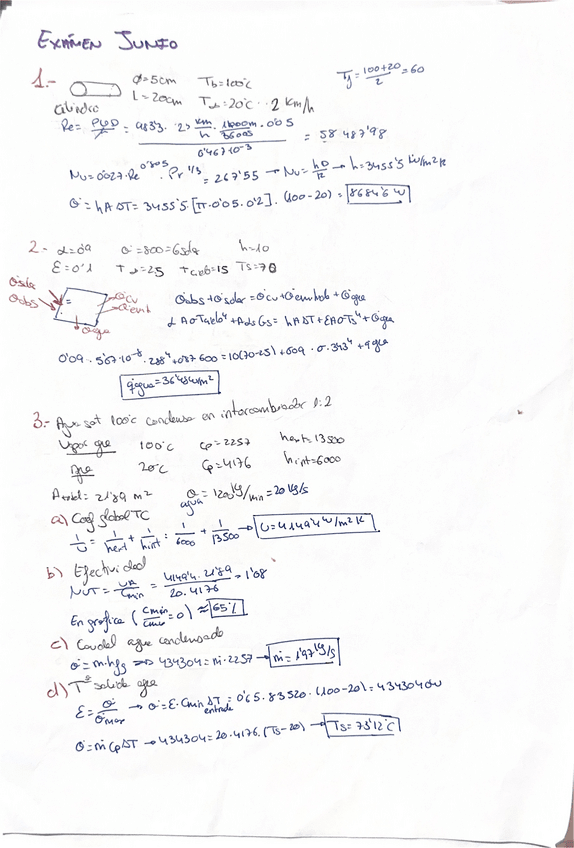 EXÁMEN JUNIO
1.- Ø=5cm Tb=100°C Tf=100+20/2=60
Cilindro L=20cm T∞=20°C 2 km/h
Re= ρUD/μ = 983'3 · 2 km/h · 1000m/3600s · 0'05 / 0'467·10^-3 = 58487'98
Nu=0'027·Re^0'805 · Pr^1/3 = 267'55 → Nu= hD/K → h=3455'5 W/m²K
Q=hAΔT= 3455'5 [π·0'05·0'2] · (100-20) = 8684'6 W
2.- α=0'9 h=10
ε=0'1 T∞=25 Ts=70
Qsolar
Qabs Qcv
Qemit
Qagua
Qabs + Qsolar = Qcv + Qemit + Qagua
hAΔT + εAσTs⁴ + Qagua
0'09 · 5'67·10^-8 · 288⁴ + 600 = 10(70-25) + σ·343⁴ + qagua
qagua=36'484 W/m²
3.- Agua sat 100°C condensa en intercambiador 1:2
Vapor 100°C cp=2257 hext=13500
20°C Cp=4176 hint=6000
21'89 m² agua 1200 kg/min = 20 kg/s
a) Coef global TC
1/U = 1/hext + 1/hint = 1/6000 + 1/13500 → U=4149'4 W/m²K
b) Efectividad
NUT = UA/Cmin = 4149'4 · 21'89 / 20·4176 = 1'08
En grafica (Cmin/Cmax=0) ≈ 65%
c) Caudal agua condensado
Q=m·hfg => 434304=m·2257 → m=1'97 kg/s
d) Tª salida agua
ε= Q/Qmax → Q=ε·Cmin ΔT entrada = 0'65·83520·(100-20)=4343040W
Q=mCpΔT → 434304=20·4176·(Ts-20) → Ts=73'12°C